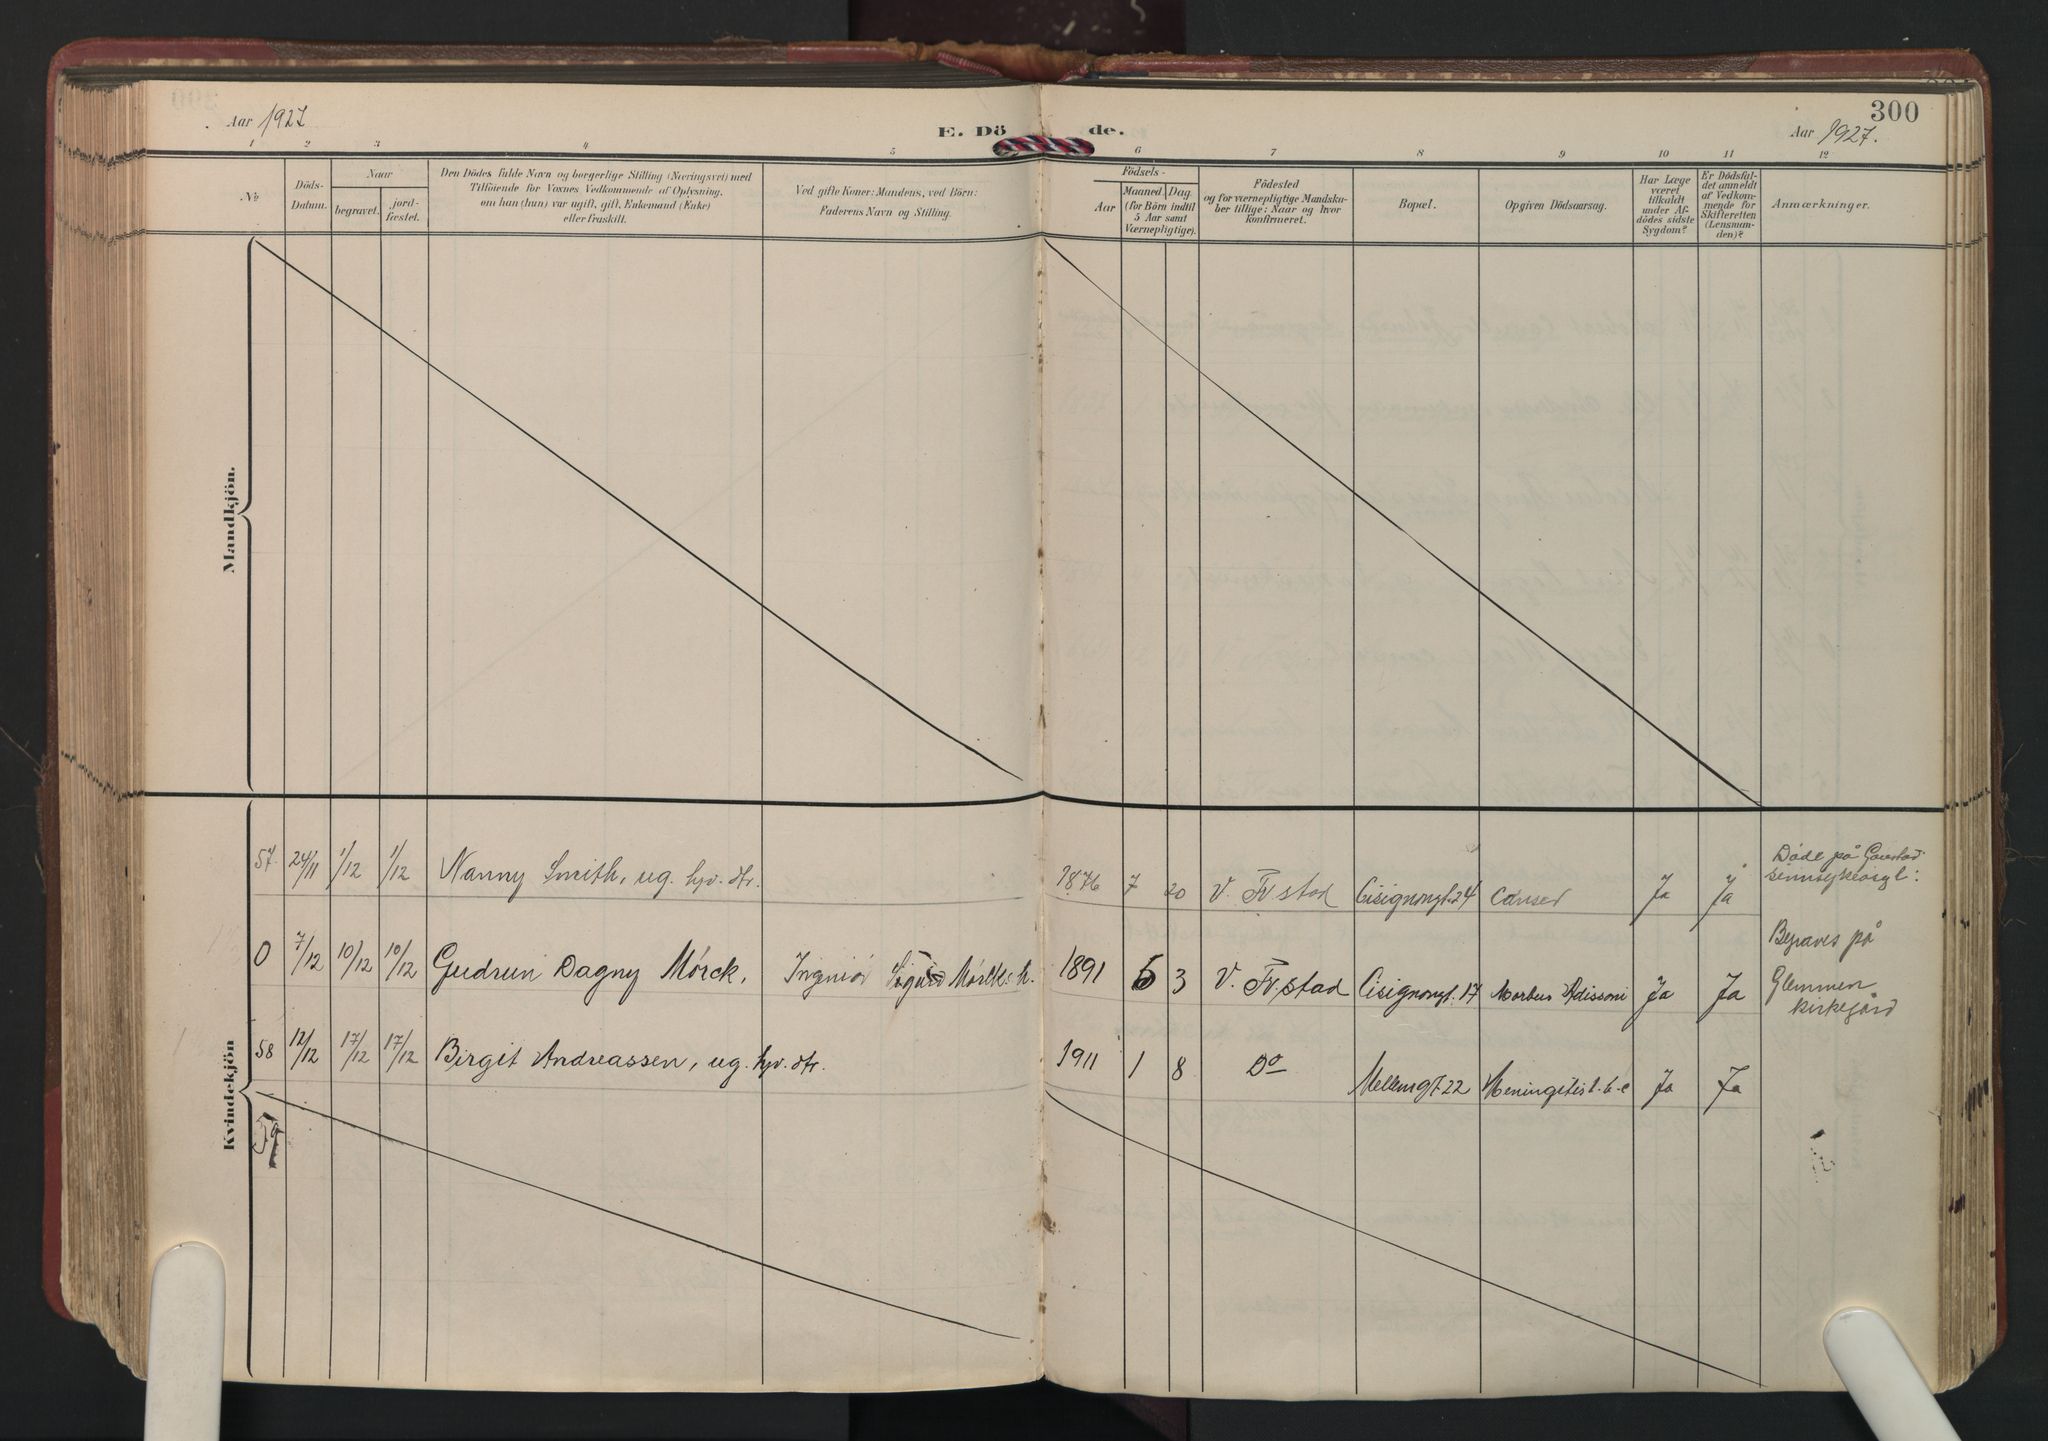 300
Aar 1927
E. Dö de.
Aar 1927.
1 2 3 4 5 6 7 8 9 10 11 12
No
Döds-
Datum.
Naar
begravet.
jord-
fæstet.
Den Dödes fulde Navn og borgerlige Stilling (Næringsvei) med
Tilföiende for Voxnes Vedkommende af Oplysning,
om han (hun) var ugift, gift, Enkemand (Enke)
eller fraskilt.
Ved gifte Koner: Mandens, ved Börn:
Faderens Navn og Stilling.
Födsels-
Aar
Maaned. Dag.
(for Börn indtil
5 Aar samt
Værnepligtige).
Födested
og for værnepligtige Mandska-
ber tillige: Naar og hvor
konfirmeret.
Bopæl.
Opgiven Dödsaarsag.
Har Læge
været
tilkaldt
under Af-
dödes sidste
Sygdom?
Er Dödsfal-
det anmeldt
af Vedkom-
mende for
Skifteretten
(Lensman-
den)?
Anmærkninger.
Mandkjön.
Kvindekjön
57. 24/11 1/12 1/12 Nanny Smith, ug. hjv. dtr. 1876 7 20 V. Fr.stad Cisignongt. 24 Canser Ja Ja
Døde på Gaustad
sinnsykeasyl.
0 7/12 10/12 10/12 Gudrun Dagny Mørck, Ingeniør Sigurd Mørck's h. 1891 6 3 V. Fr.stad Cisignongt. 17 Morbus Adissoni Ja Ja
Begraves på
Glemmen
kirkegård
58 12/12 17/12 17/12 Birgit Andreassen, ug. hjv. dtr. 1911 1 8 Do Mellemgt. 22 Meningitis t.b.c Ja Ja
59